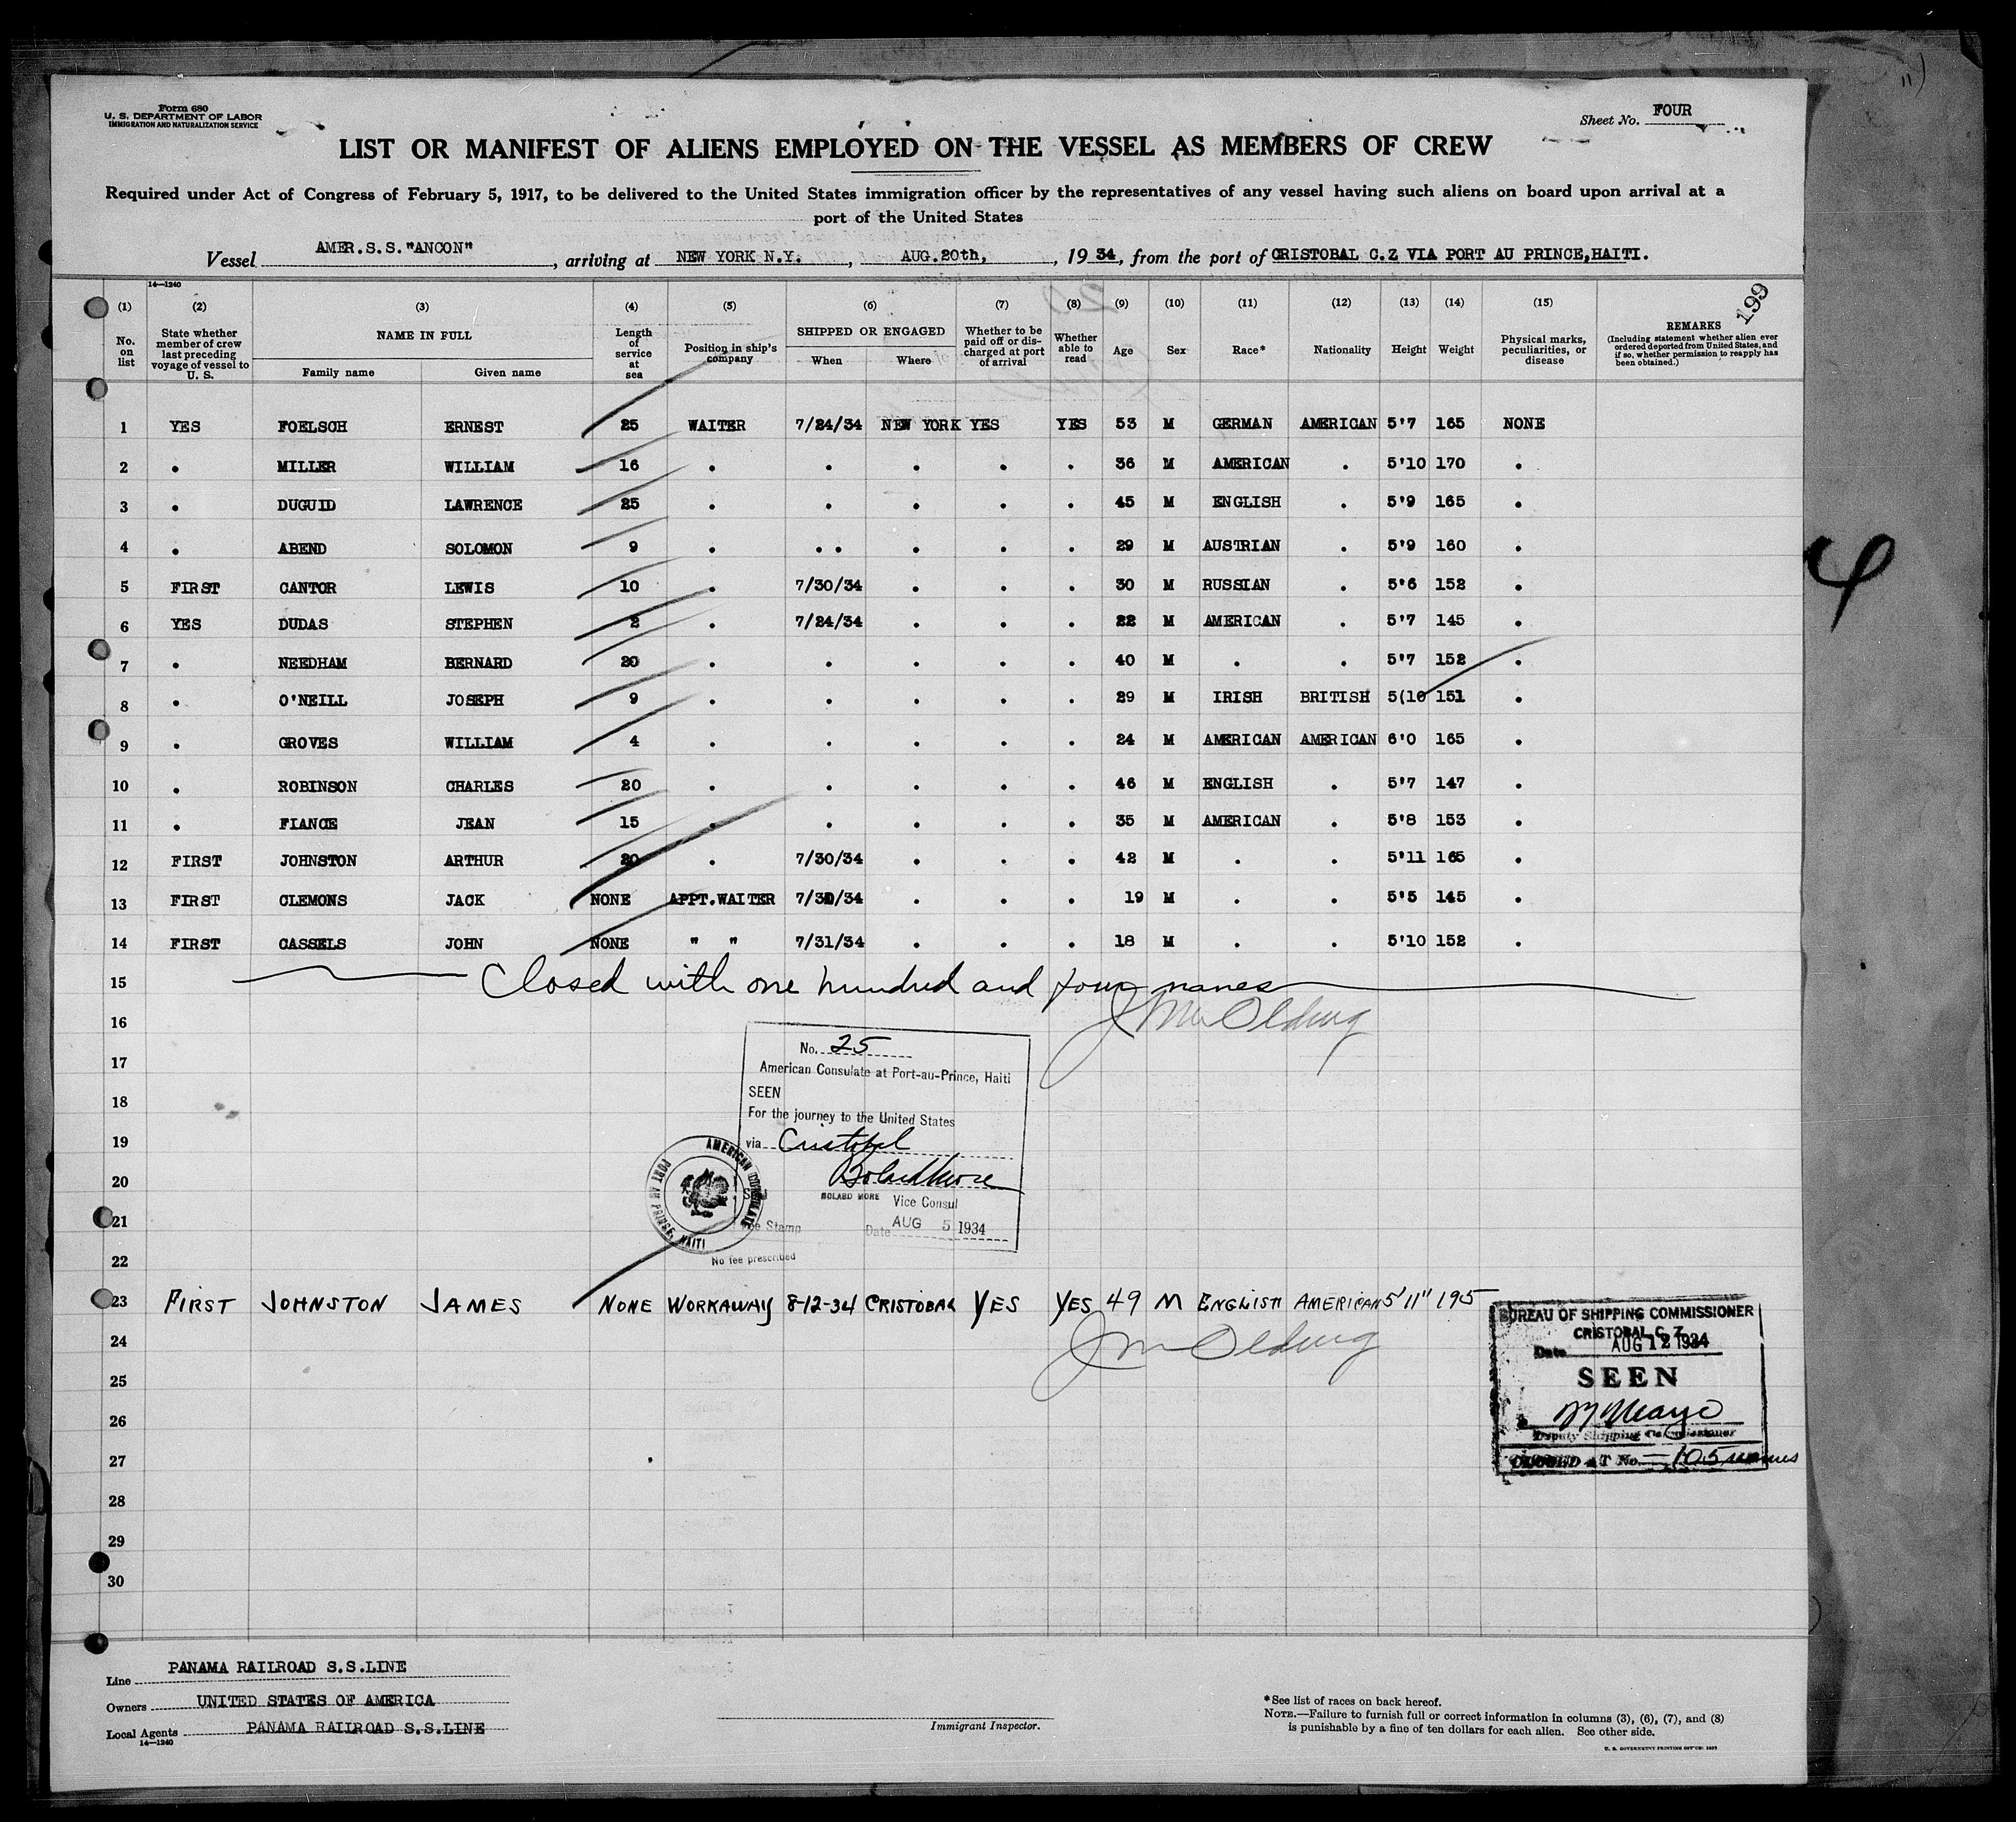 Form 680
U. S. DEPARTMENT OF LABOR
IMMIGRATION AND NATURALIZATION SERVICE
Sheet No. FOUR
LIST OR MANIFEST OF ALIENS EMPLOYED ON THE VESSEL AS MEMBERS OF CREW
Required under Act of Congress of February 5, 1917, to be delivered to the United States immigration officer by the representatives of any vessel having such aliens on board upon arrival at a
port of the United States
Vessel AMER.S.S."ANCON", arriving at NEW YORK N.Y., AUG.20th, 1934, from the port of CRISTOBAL C.Z VIA PORT AU PRINCE,HAITI.
14—1240
199
(1) (2) (3) (4) (5) (6) (7) (8) (9) (10) (11) (12) (13) (14) (15)
No. on list
State whether member of crew last preceding voyage of vessel to U. S.
NAME IN FULL
Family name
Given name
Length of service at sea
Position in ship's company
SHIPPED OR ENGAGED
When
Where
Whether to be paid off or discharged at port of arrival
Whether able to read
Age
Sex
Race*
Nationality
Height
Weight
Physical marks, peculiarities, or disease
REMARKS
(Including statement whether alien ever ordered deported from United States, and if so, whether permission to reapply has been obtained.)
1 YES FOELSCH ERNEST 25 WAITER 7/24/34 NEW YORK YES YES 53 M GERMAN AMERICAN 5'7 165 NONE
2 . MILLER WILLIAM 16 . . . . . 36 M AMERICAN . 5'10 170 .
3 . DUGUID LAWRENCE 25 . . . . . 45 M ENGLISH . 5'9 165 .
4 . ABEND SOLOMON 9 . . . . . . 29 M AUSTRIAN . 5'9 160 .
5 FIRST CANTOR LEWIS 10 . 7/30/34 . . . 30 M RUSSIAN . 5'6 152 .
6 YES DUDAS STEPHEN 2 . 7/24/34 . . . 22 M AMERICAN . 5'7 145 .
7 . NEEDHAM BERNARD 20 . . . . . 40 M . . 5'7 152 .
8 . O'NEILL JOSEPH 9 . . . . . 29 M IRISH BRITISH 5(10 151 .
9 . GROVES WILLIAM 4 . . . . . 24 M AMERICAN AMERICAN 6'0 165 .
10 . ROBINSON CHARLES 20 . . . . . 46 M ENGLISH . 5'7 147 .
11 . FIANCE JEAN 15 . . . . . 35 M AMERICAN . 5'8 153 .
12 FIRST JOHNSTON ARTHUR 20 . 7/30/34 . . . 42 M . . 5'11 165 .
13 FIRST CLEMONS JACK NONE APPT.WAITER 7/30/34 . . . 19 M . . 5'5 145 .
14 FIRST CASSELS JOHN NONE " " 7/31/34 . . . 18 M . . 5'10 152 .
15 Closed with one hundred and four names
16 J M Olding
17
18
19
20
21
22
No. 25
American Consulate at Port-au-Prince, Haiti
SEEN
For the journey to the United States
via Cristobal
Bolard More
BOLARD MORE Vice Consul
Fee Stamp
Date AUG 5 1934
No fee prescribed
AMERICAN CONSULATE
PORT AU PRINCE, HAITI
23 FIRST JOHNSTON JAMES NONE WORKAWAY 8-12-34 CRISTOBAL YES YES 49 M ENGLISH AMERICAN 5'11" 195
J M Olding
24
25
26
27
28
29
30
BUREAU OF SHIPPING COMMISSIONER
CRISTOBAL C. Z.
Date AUG 12 1934
SEEN
Deputy Shipping Commissioner
CLOSED AT No. 105 names
4
Line PANAMA RAILROAD S.S.LINE
Owners UNITED STATES OF AMERICA
Local Agents PANAMA RAIIROAD S.S.LINE
14—1240
Immigrant Inspector.
*See list of races on back hereof.
NOTE.—Failure to furnish full or correct information in columns (3), (6), (7), and (8)
is punishable by a fine of ten dollars for each alien. See other side.